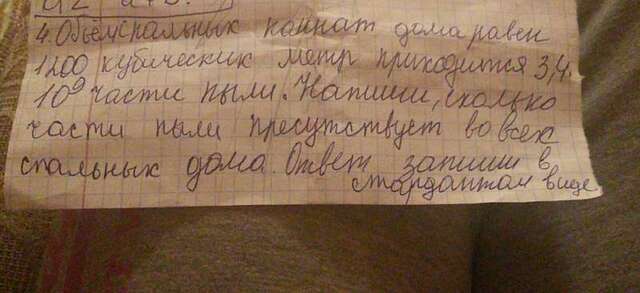 4. Объём спальных комнат дома равен
1200 кубических метр приходится 3,4.
10⁹ части пыли. Напиши, сколько
части пыли присутствует во всех
спальных дома. Ответ запиши в
стандартам виде